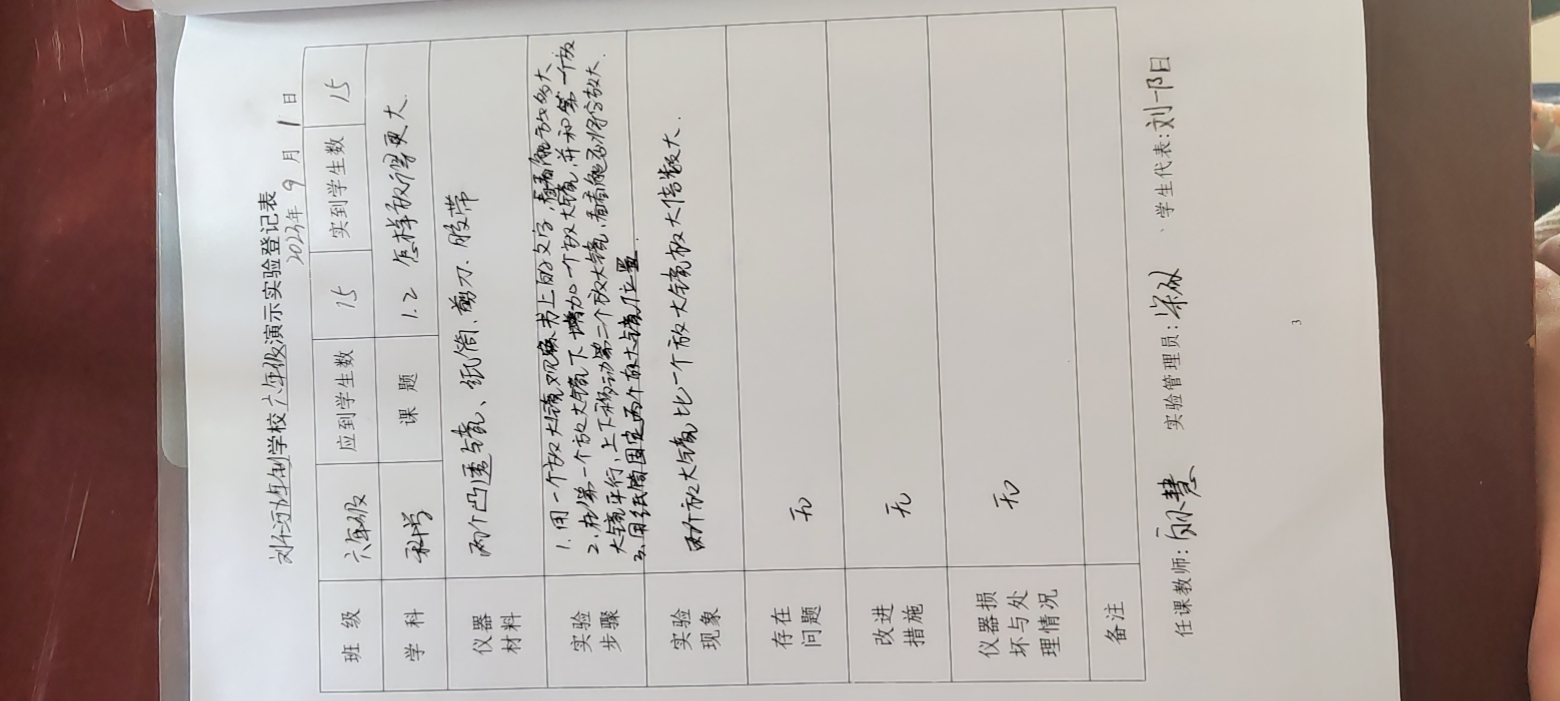 学校六年级演示实验登记表
2023年 9 月 1 日
班 级 六年级 应到学生数 15 实到学生数 15
学 科 科学 课 题 1.2 怎样放得更大
仪器
材料
两个凸透镜、纸筒、剪刀、胶带
实验
步骤
1. 用一个放大镜观察书上的文字,看看能放多大.
2. 在第一个放大镜下增加一个放大镜,并和第一个放
大镜平行,上下移动第二个放大镜,看看能否将字放大
3. 用纸筒固定两个放大镜位置.
实验
现象
两个放大镜比一个放大镜放大倍数大.
存在
问题
无
改进
措施
无
仪器损
坏与处
理情况
无
备注
任课教师: 慧 实验管理员: 学生代表:刘一阳
3